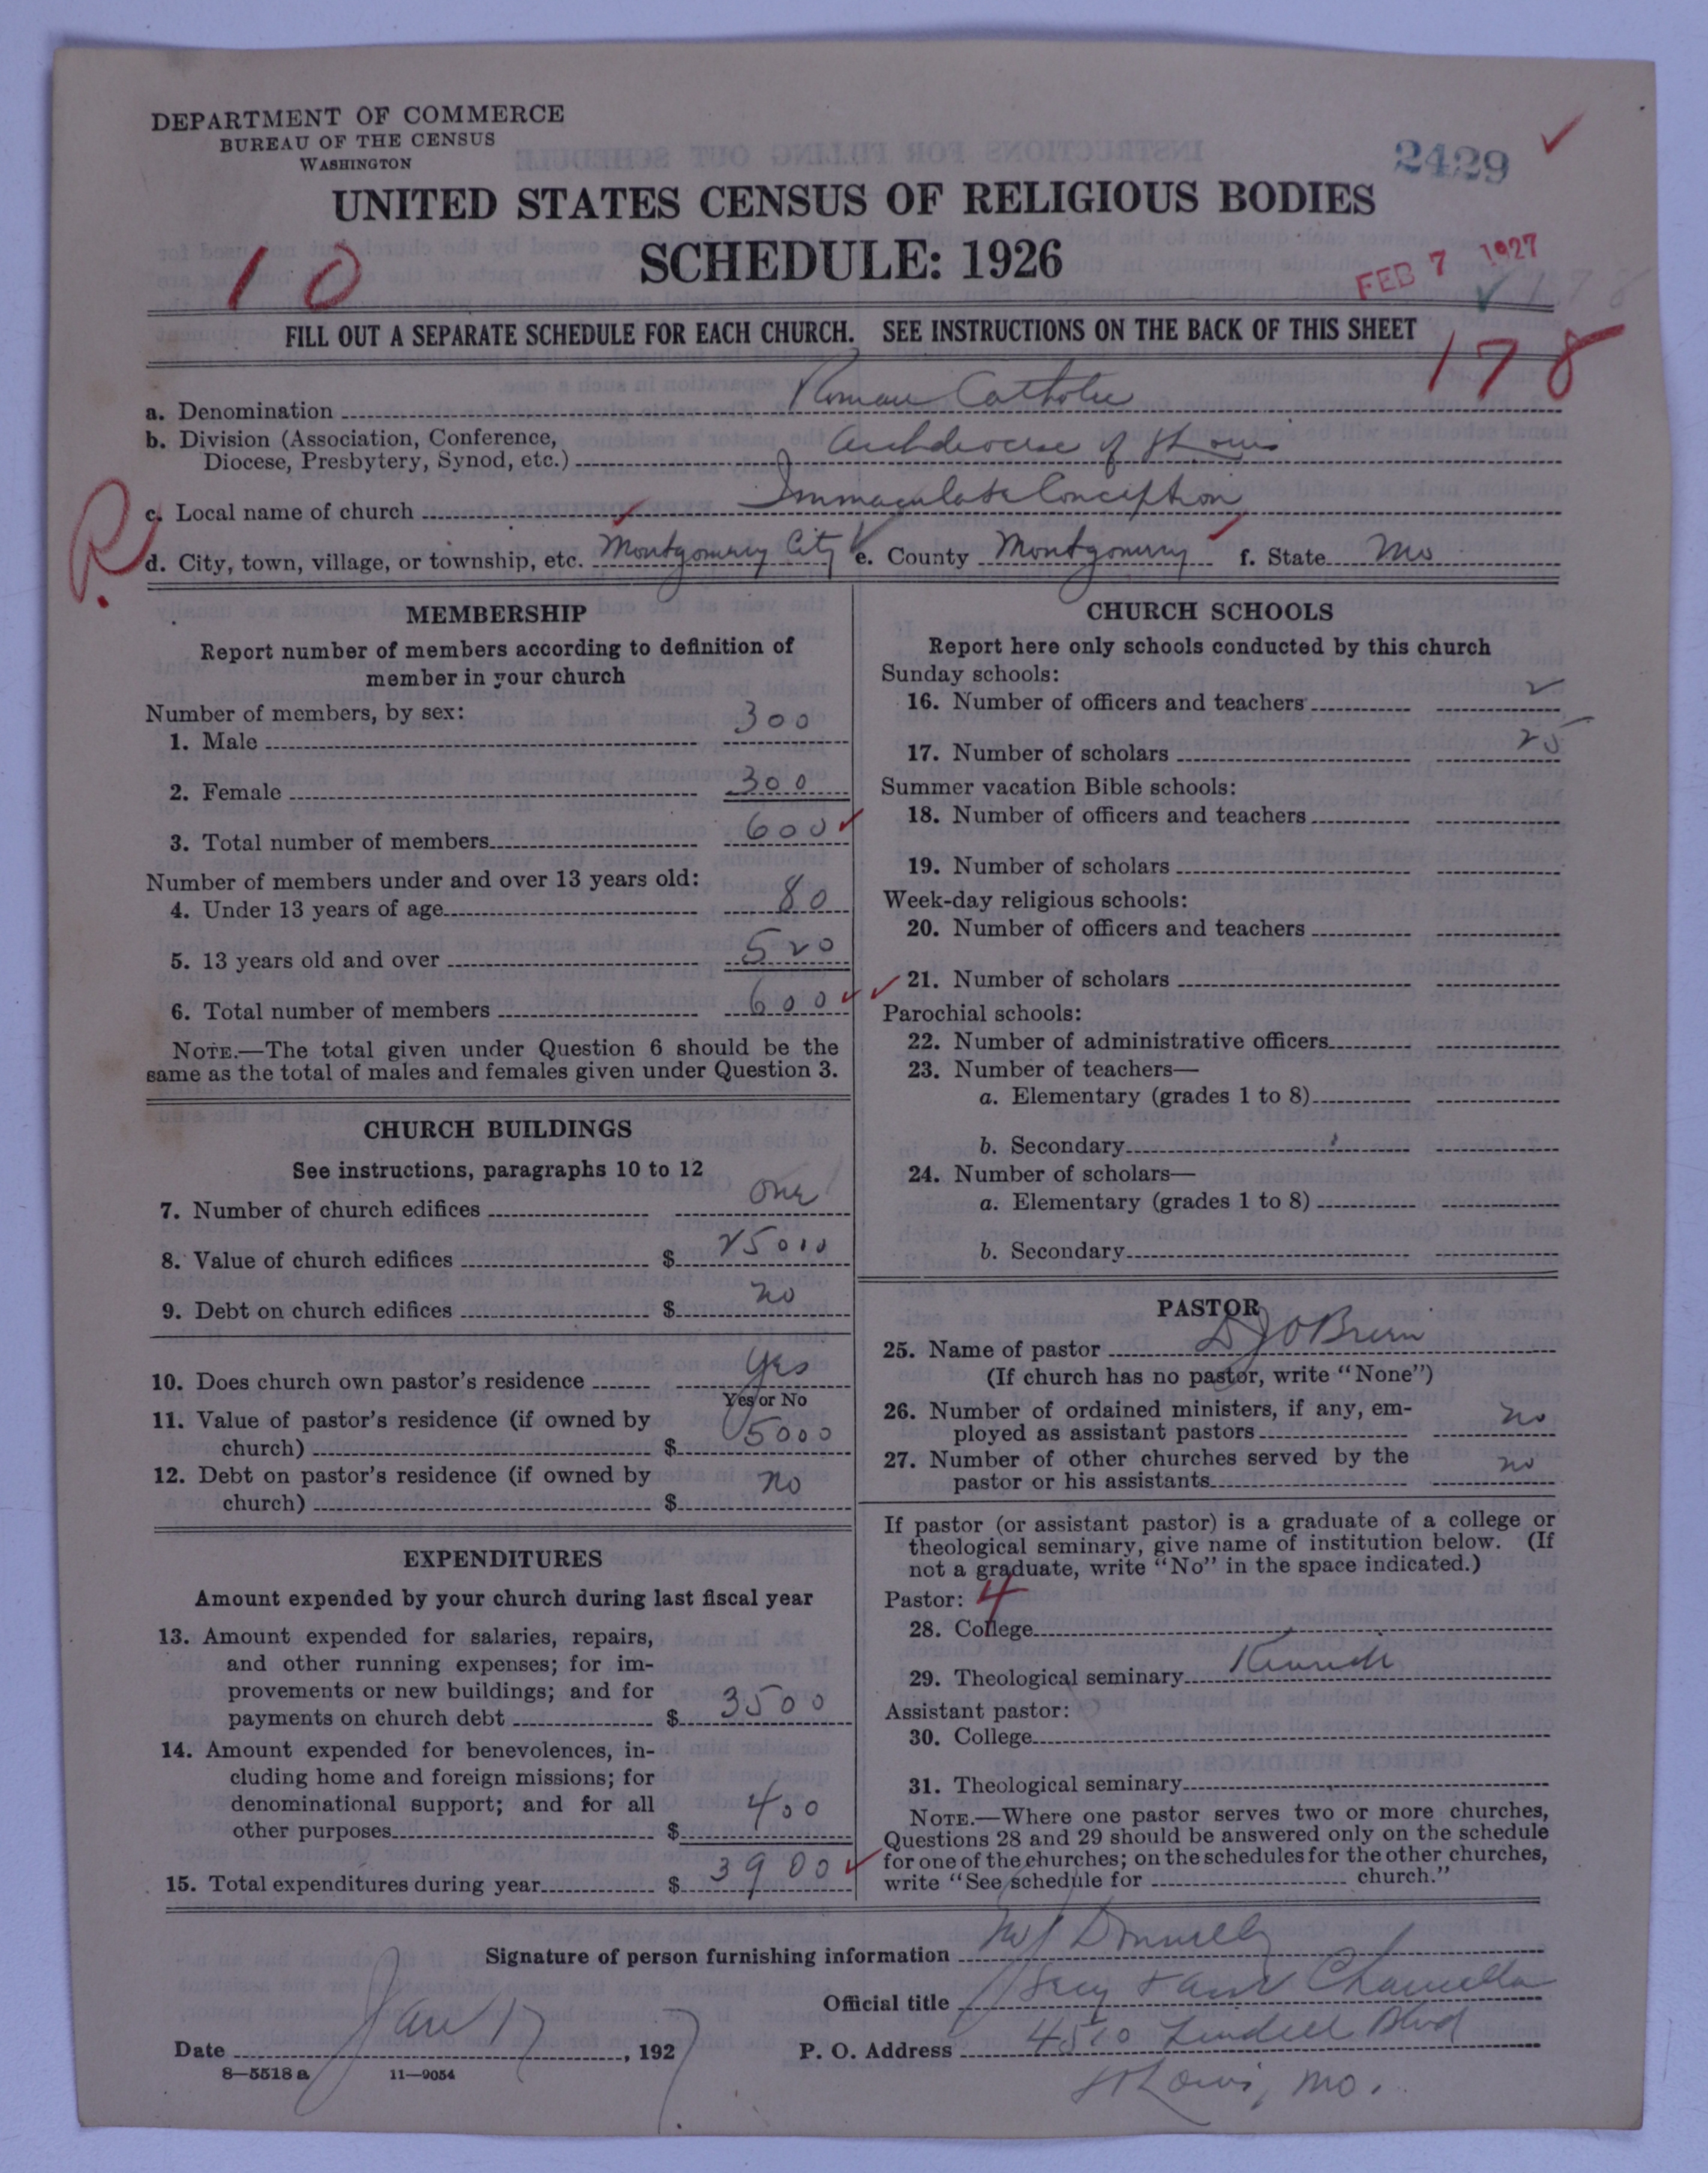 DEPARTMENT OF COMMERCE
BUREAU OF THE CENSUS
WASHINGTON
2429
UNITED STATES CENSUS OF RELIGIOUS BODIES
SCHEDULE: 1926
10
FEB 7 1927
178
FILL OUT A SEPARATE SCHEDULE FOR EACH CHURCH. SEE INSTRUCTIONS ON THE BACK OF THIS SHEET
178
a. Denomination Roman Catholic
b. Division (Association, Conference,
Diocese, Presbytery, Synod, etc.) Archdiocese of St Louis
R.
c. Local name of church Immaculate Conception
d. City, town, village, or township, etc. Montgomery City e. County Montgomery f. State Mo
MEMBERSHIP
Report number of members according to definition of
member in your church
Number of members, by sex:
1. Male 300
2. Female 300
3. Total number of members 600
Number of members under and over 13 years old:
4. Under 13 years of age 80
5. 13 years old and over 520
6. Total number of members 600
NOTE.—The total given under Question 6 should be the
same as the total of males and females given under Question 3.
CHURCH BUILDINGS
See instructions, paragraphs 10 to 12
7. Number of church edifices one
8. Value of church edifices $ 25000
9. Debt on church edifices $ no
10. Does church own pastor's residence yes
Yes or No
11. Value of pastor's residence (if owned by
church) $ 5000
12. Debt on pastor's residence (if owned by
church) $ no
EXPENDITURES
Amount expended by your church during last fiscal year
13. Amount expended for salaries, repairs,
and other running expenses; for im-
provements or new buildings; and for
payments on church debt $ 3500
14. Amount expended for benevolences, in-
cluding home and foreign missions; for
denominational support; and for all
other purposes $ 400
15. Total expenditures during year $ 3900
CHURCH SCHOOLS
Report here only schools conducted by this church
Sunday schools:
16. Number of officers and teachers 2
17. Number of scholars 25
Summer vacation Bible schools:
18. Number of officers and teachers
19. Number of scholars
Week-day religious schools:
20. Number of officers and teachers
21. Number of scholars
Parochial schools:
22. Number of administrative officers
23. Number of teachers—
a. Elementary (grades 1 to 8)
b. Secondary
24. Number of scholars—
a. Elementary (grades 1 to 8)
b. Secondary
PASTOR
25. Name of pastor D J O Brien
(If church has no pastor, write "None")
26. Number of ordained ministers, if any, em-
ployed as assistant pastors no
27. Number of other churches served by the
pastor or his assistants no
If pastor (or assistant pastor) is a graduate of a college or
theological seminary, give name of institution below. (If
not a graduate, write "No" in the space indicated.)
Pastor: 4
28. College
29. Theological seminary Kenrick
Assistant pastor:
30. College
31. Theological seminary
NOTE.—Where one pastor serves two or more churches,
Questions 28 and 29 should be answered only on the schedule
for one of the churches; on the schedules for the other churches,
write "See schedule for church."
Signature of person furnishing information Donnelly
Official title Secy
Date Jan 17, 1927
P. O. Address 4510 Lindell Blvd
St Louis, Mo.
8—5518 a 11—9054